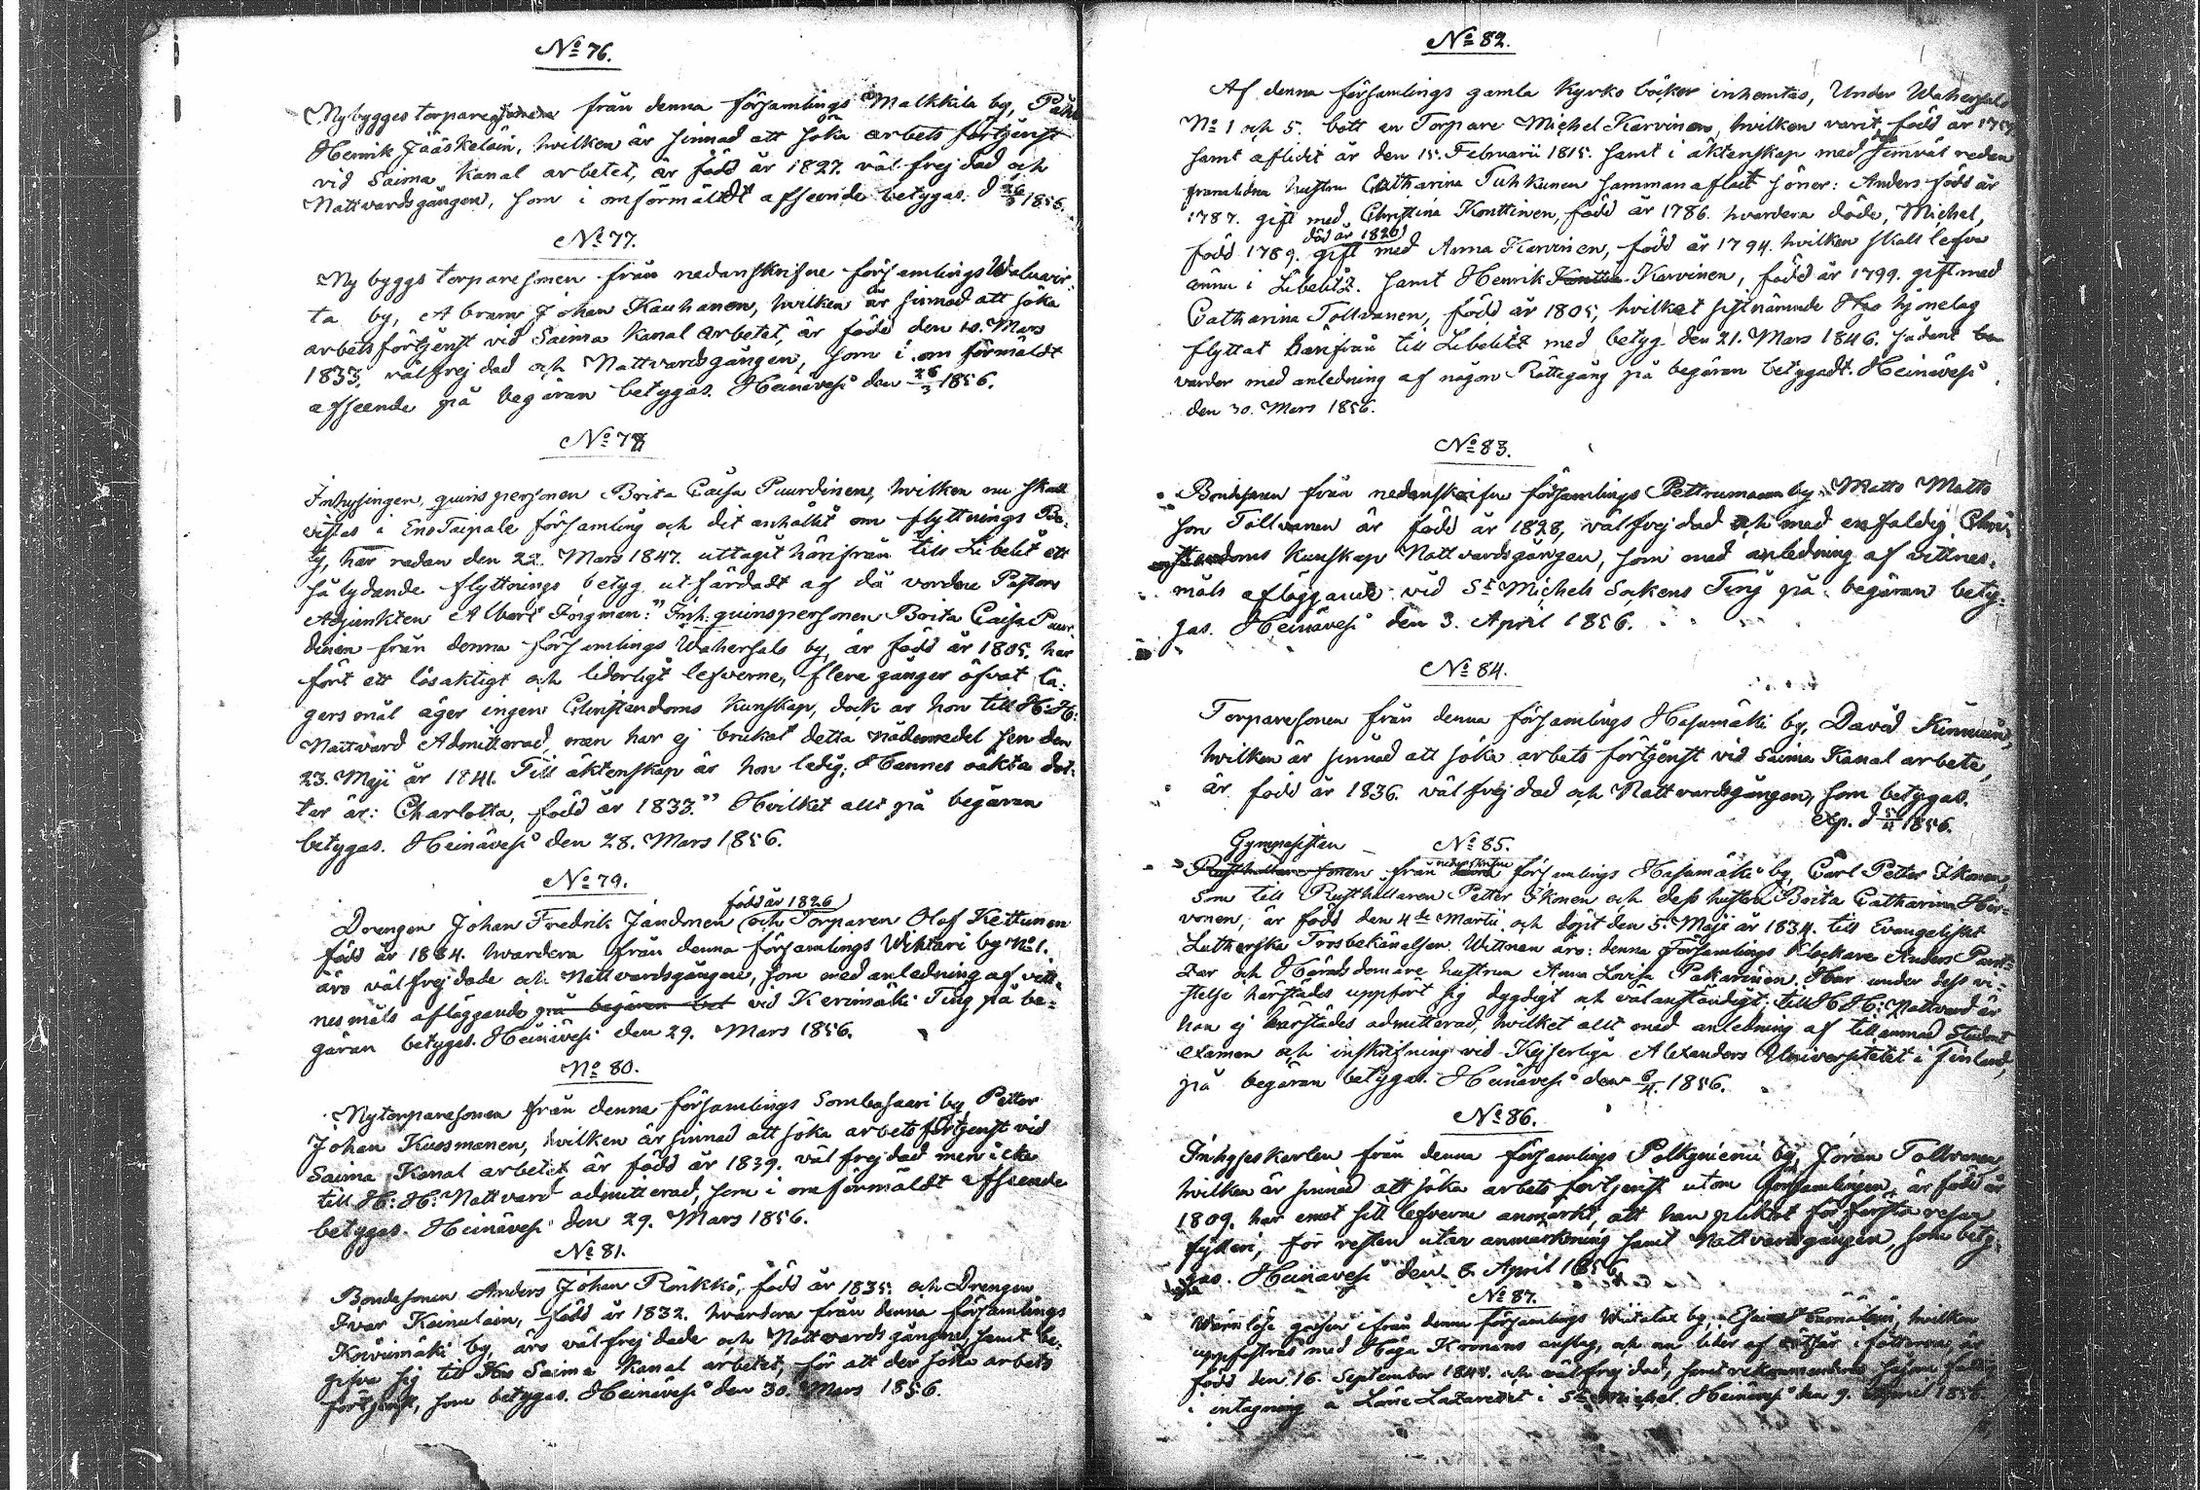 No 76.
Nybygges torpare sonen från denna församlings Malkkila by, Pehr
Henrik Jääskeläin, hvilken är sinnad att söka arbets förtjenst
vid Saima Kanal arbetet, är född år 1827. väl frejdad och
Nattvardsgången, som i omförmäldt afseende betygas. d 26/3 1856.
No 77.
Ny byggs torparesonen från nedanskrifne församlings
ta by, Abram Johan Kauhanen, hvilken är sinnad att söka
arbets förtjenst vid Saima Kanal arbetet, är född den 10. Mars
1833. välfrejdad och Nattvardsgången, som i omförmäldt
afseende på begäran betygas. Heinävesi den 26/3 1856.
No 78
Inhysingen, qvinspersonen Brita Caisa Puurdinen, hvilken nu skall
vistas i EnoTaipale församling och dit anhållit om flyttnings Be-
tyg, har redan den 22. Mars 1847. uttagit härifrån till Libelitz ett
så lydande flyttnings betyg utfärdadt af då vordne Pastors
Adjunkten Albert Forsman: "Inh: qvinspersonen Brita Caisa Puur-
dinen från denna församlings Wihersalo by, är född år 1805. har
fört ett lösaktigt och liderligt lefverne, flere gånger öfvat lä-
gersmål äger ingen Christendoms Kunskap, dock är hon till H:H:
Nattvard Admitterad, men har ej brukat detta nådemedel sen den
23. Maji år 1841. Till äktenskap är hon ledig; Hennes oäkta dot-
ter är: Charlotta, född år 1833." Hvilket allt på begäran
betygas. Heinävesi den 28. Mars 1856.
No 79.
född år 1826
Drengen Johan Fredrik Jandmen och Torparen Olof Kettunen
född år 1834. hvardera från denna församlings Wihtari by No 1.
äro välfrejdade och Nattvardsgångne, som med anledning af vitt-
nesmåls afläggande på begäran bet vid Kerimäki Ting på be-
gäran betygas. Heinävesi den 29. Mars 1856.
No 80.
Nytorparesonen från denna församlings Sombasaari by, Petter
Johan Kuosmanen, hvilken är sinnad att söka arbets förtjenst vid
Saima Kanal arbetet är född år 1839. väl frejdad men icke
till H: H: Nattvard admitterad, som i omförmäldt afseende
betygas. Heinävesi den 29. Mars 1856.
No 81.
Bondesonen Anders Johan Roikkö, född år 1835. och Drengen
Ivar Kainulain, född år 1832. hvardera från denna församlings
Koivumäki by, äro välfrejdade och Nattvards gångne, samt be-
gifva sig till Saima Kanal arbetet, för att der söka arbets
förtjenst, som betygas. Heinävesi den 30. Mars 1856.
No 82.
Af denna församlings gamla Kyrko böcker inhemtas, Under Wihersalo
No 1 och 5. bott en Torpare Michel Karvinen, hvilken varit född år
samt aflidit år den 15. Februarii 1815. samt i äktenskap med jemväl redan
hustru Catharina Tuhkunen sammanaflat söner: Anders född år
1787. gift med Christina Konttinen, född år 1786. hvardera döde, Michel,
död år 1820
född 1789. gift med Anna Karvinen, född år 1794. hvilken skall lefva
ännu i Libelitz. samt Henrik Karvinen, född år 1799. gift med
Catharina Tollvanen, född år 1805, hvilket sistnämnde hjonelag
flyttat härifrån till Libelitz med betyg den 21. Mars 1846. sådant
varder med anledning af någon Rättegång på begäran betygadt. Heinävesi
den 30. Mars 1856.
No 83.
Bondesonen från nedanskrifne församlings Pettrumaan by Matts Matts
son Tollvanen är född år 1828, välfrejdad och med enfaldig Chri-
stendoms Kunskap Nattvardsgången, som med anledning af vittnes-
måls afläggande vid St Michels Sockens Ting på begäran bety-
gas. Heinävesi den 3. April 1856.
No 84.
Torparesonen från denna församlings Hasumäki by, David Kinnunen,
hvilken är sinnad att söka arbets förtjenst vid Saima Kanal arbete,
är född år 1836. väl frejdad och Nattvardsgången, som betygas.
Exp. d 5/4 1856.
No 85.
Gymnasisten
Rusthållare sonen från nedanskrifne församlings Hasumäki by, Carl Petter Ikonen,
Som till Rusthållaren Petter Ikonen och dess hustru Brita Catharina Hir-
vonen, är född den 4de Martii och döpt den 5. Maji år 1834. till Evangeliskt
Lutherska Trosbekänelsen. Wittnen äro: denna Församlings Klockare Anders
och Häradsdomare hustrun Anna Lovisa Pakarinen. Har under dess vi-
stelse härstädes uppfört sig dygdigt och välanständigt; till H.H: Nattvard är
han ej härstädes admitterad, hvilket allt med anledning af tillämnad Student
examen och inskrifning vid Kejserliga Alexanders Universitetet i Finland,
på begäran betygas. Heinävesi den 8/4 1856.
No 86.
Inhyseskarlen från denna församlings by, Jöran Tollvanen,
hvilken är sinnad att söka arbets förtjenst utom församlingen, är född år
1809. har emot sitt lefverne anmärkt, att han pliktat för första resan
fylleri, för resten utan anmärkning samt Nattvardsgången, som bety-
gas. Heinävesi den 8. April 1856
No 87.
Wärnlöse gossen ifrån denna församlings by, hvilken
uppfostras med Höga Kronans anslag, och nu lider af i fötterna, är
född den 16. September 1848. och välfrejdad, samt
i intagning å Läne Lazarettet i St Michel. Heinävesi den 9. April 1856.